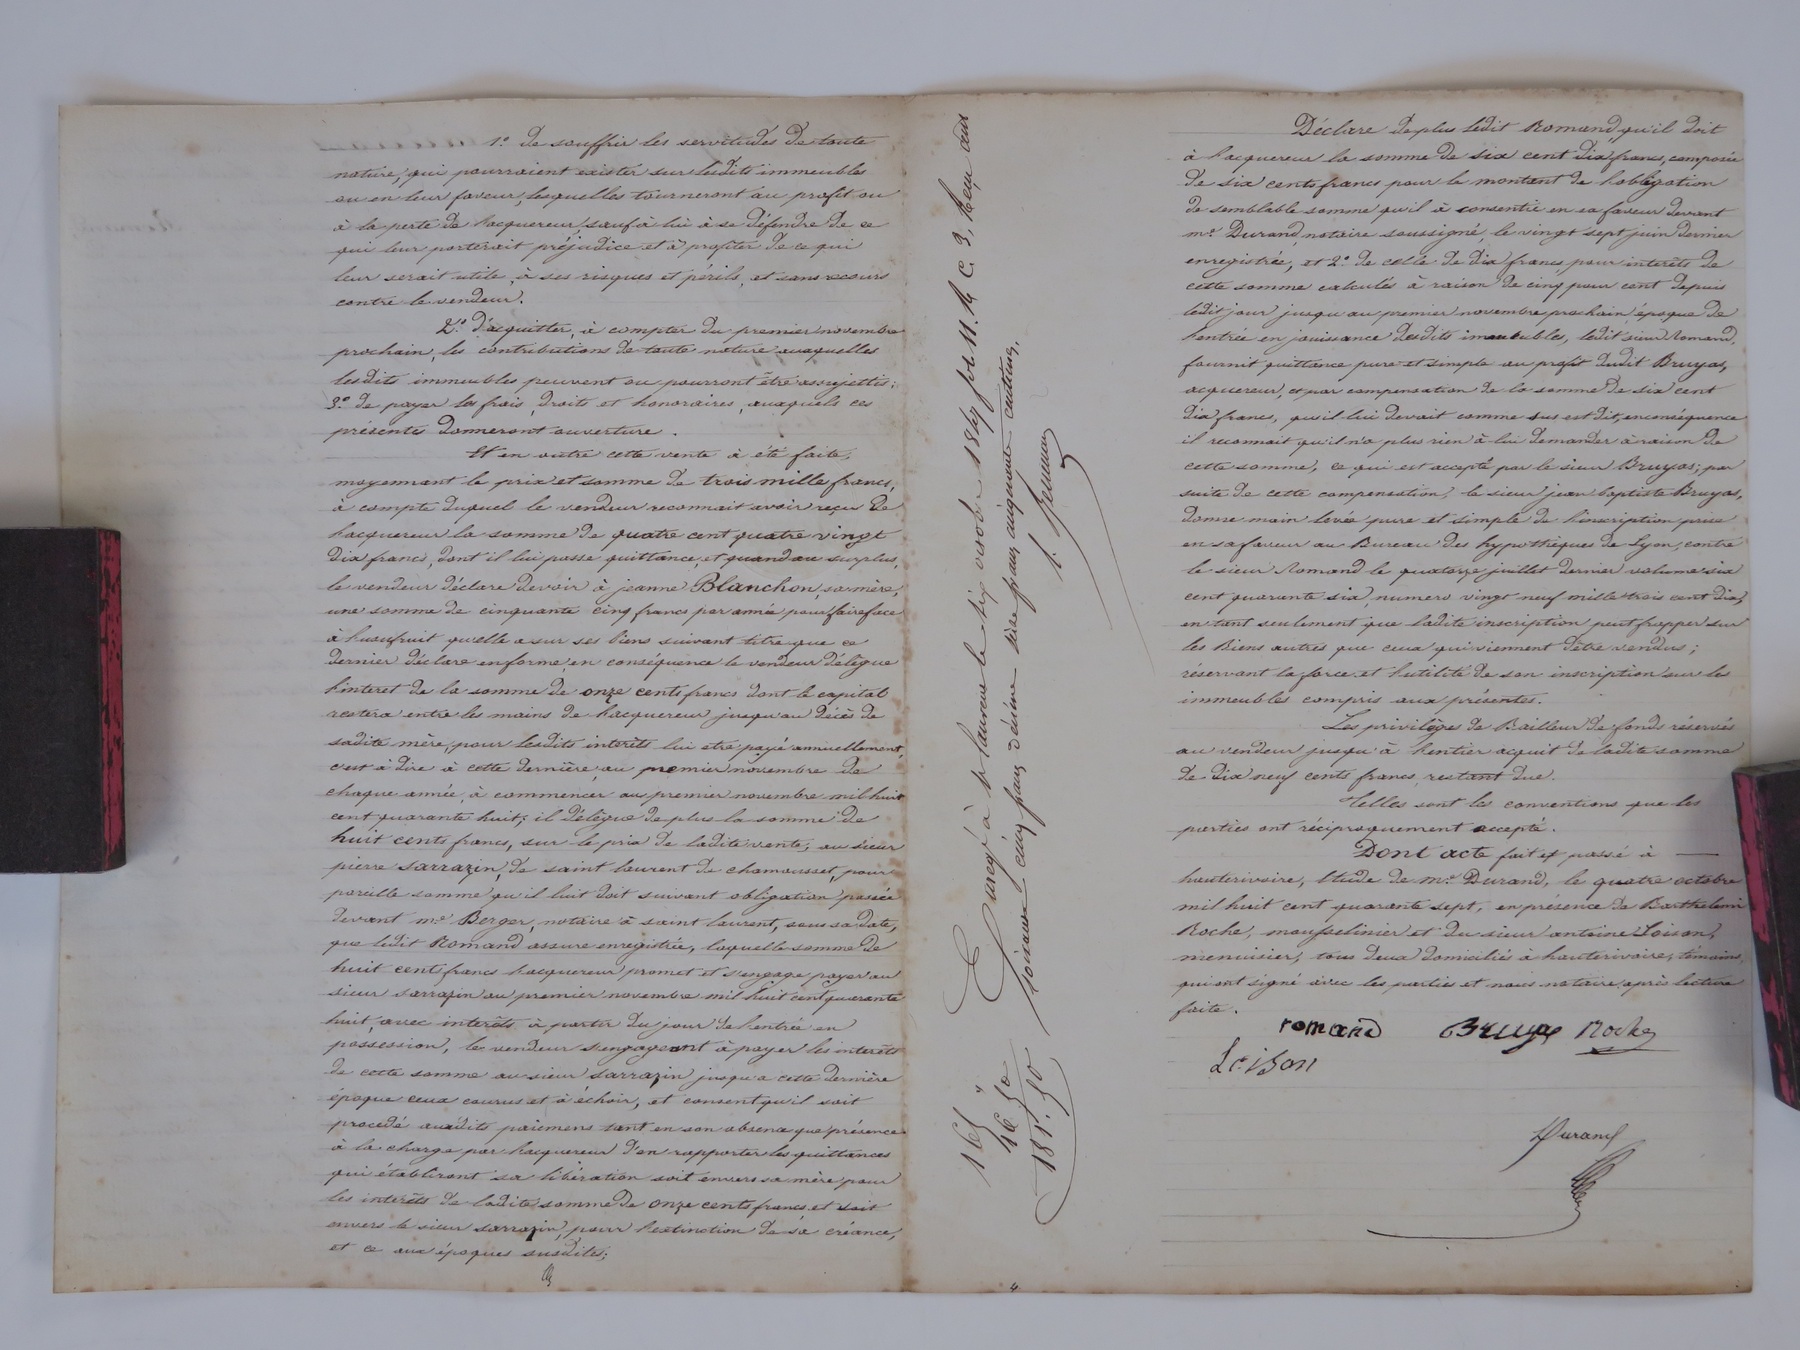 1.º de souffrir les servitudes de toute
nature, qui pourraient exister sur lesdits immeubles
ou en leur faveur, lesquelles tourneront au profit ou
à la perte de l'acquereur, sauf à lui à se défendre de ce
qui leur porterait préjudice et à profiter de ce qui
leur serait utile, à ses risques et périls, et sans recours
contre le vendeur.
2.º d'acquitter, à compter du premier novembre
prochain, les contributions de toute nature auxquelles
lesdits immeubles peuvent ou pourront être assujettis;
3.º de payer les frais, droits et honoraires, auxquels ces
présentes donneront ouverture.
Et en outre cette vente à été faite,
moyennant le prix et somme de trois mille francs,
à compte duquel le vendeur reconnait avoir reçu de
l'acquereur la somme de quatre cent quatre vingt
dix francs, dont il lui passe quittance, et quand au surplus,
le vendeur déclare devoir à jeanne Blanchon, sa mère,
une somme de cinquante cinq francs par année pour faire face
à l'usufruit qu'elle a sur ses biens suivant titre que ce
dernier déclare en forme, en conséquence le vendeur délègue
l'interet de la somme de onze cents francs dont le capital
restera entre les mains de l'acquereur jusqu'au décès de
sadite mère, pour lesdits intérêts lui etre payé annuellement,
c'est à dire à cette dernière, au premier novembre de
chaque année, à commencer au premier novembre mil huit
cent quarante huit; il délègue de plus la somme de
huit cents francs, sur le prix de ladite vente, au sieur
pierre Sarrazin, de saint laurent de chamousset, pour
pareille somme qu'il luit doit suivant obligation passée
devant m.e Berger, notaire à saint laurent, sous sa date,
que ledit Romand assure enregistrée, laquelle somme de
huit cents francs l'acquereur promet et s'engage payer au
sieur sarrazin au premier novembre mil huit cent quarante
huit, avec intérêts à partir du jour de l'entrée en
possession, le vendeur s'engageant à payer les interêts
de cette somme au sieur Sarrazin jusqu'a cette dernière
époque ceux courus et à échoir, et consent qu'il soit
procedé auxdits paiemens tant en son absence que présence
à la charge par l'acquereur d'en rapporter les quittances
qui établiront sa libération soit envers sa mère pour
les interêts de ladite somme de onze cents francs et soit
envers le sieur sarrazin, pour l'extinction de sa créance,
et ce aux époques susdites;
Enregé à St laurent le six octobre 1847 fol 11. Rº C. 3, Reçu cent
soixante cinq francs, décime seize francs cinquante centimes.
165 "
16 50
181. 50
Déclare de plus ledit Romand, qu'il doit
à l'acquereur la somme de six cent dix francs, composée
de six cents francs pour le montant de l'obligation
de semblable somme qu'il à consentie en sa faveur devant
m.e Durand, notaire soussigné, le vingt sept juin dernier
enregistrée, et 2.º de celle de dix francs, pour interêts de
cette somme calculés à raison de cinq pour cent depuis
ledit jour jusqu'au premier novembre prochain époque de
l'entrée en jouissance desdits immeubles, ledit sieur Romand,
fournit quittance pure et simple au profit dudit Bruyas,
acquereur, et par compensation de la somme de six cent
dix francs, qu'il lui devait comme sus est dit, en conséquence
il reconnait qu'il n'a plus rien à lui demander à raison de
cette somme, ce qui est accepté par le sieur Bruyas; par
suite de cette compensation, le sieur jean baptiste Bruyas,
donne main levée pure et simple de l'inscription prise
en sa faveur au Bureau des hypothèques de Lyon, contre
le sieur Romand le quatorze juillet dernier volume six
cent quarante six, numero vingt neuf mille trois cent dix,
en tant seulement que ladite inscription peut frapper sur
les Biens autres que ceux qui viennent d'être vendus;
réservant la force et l'utilité de son inscription sur les
immeubles compris aux présentes.
Les privilèges de Bailleur de fonds réservés
au vendeur jusqu'à l'entier acquit de ladite somme
de dix neuf cents francs, restant due.
Telles sont les conventions que les
parties ont réciproquement accepté.
Dont acte fait et passé à
hauterivoire, Etude de m.e Durand, le quatre octobre
mil huit cent quarante sept, en présence de Barthelemi
Roche, mousselinier et du sieur antoine Loison,
menuisier, tous deux domiciliés à hauterivoire, témoins,
qui ont signé avec les parties et nous notaire, après lecture
faite.
romand Bruyas Roche
Loison
Durand